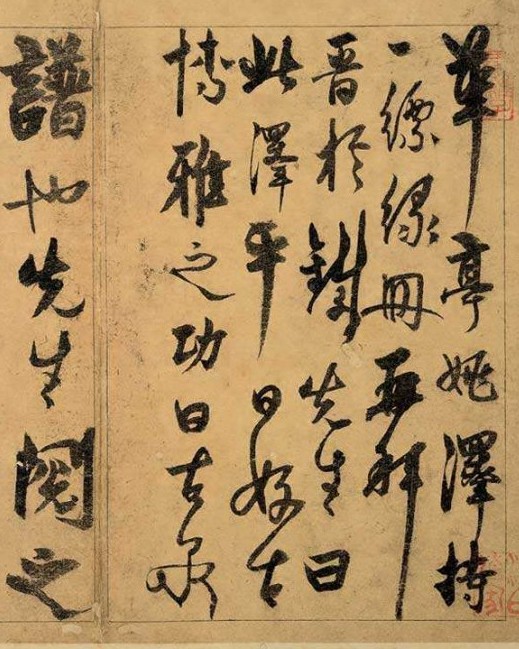 華亭姚澤持
一縹緑冊再拜
晉於鐵先生曰
此澤平日好古
博雅之功曰古泉
譜也先生閱之